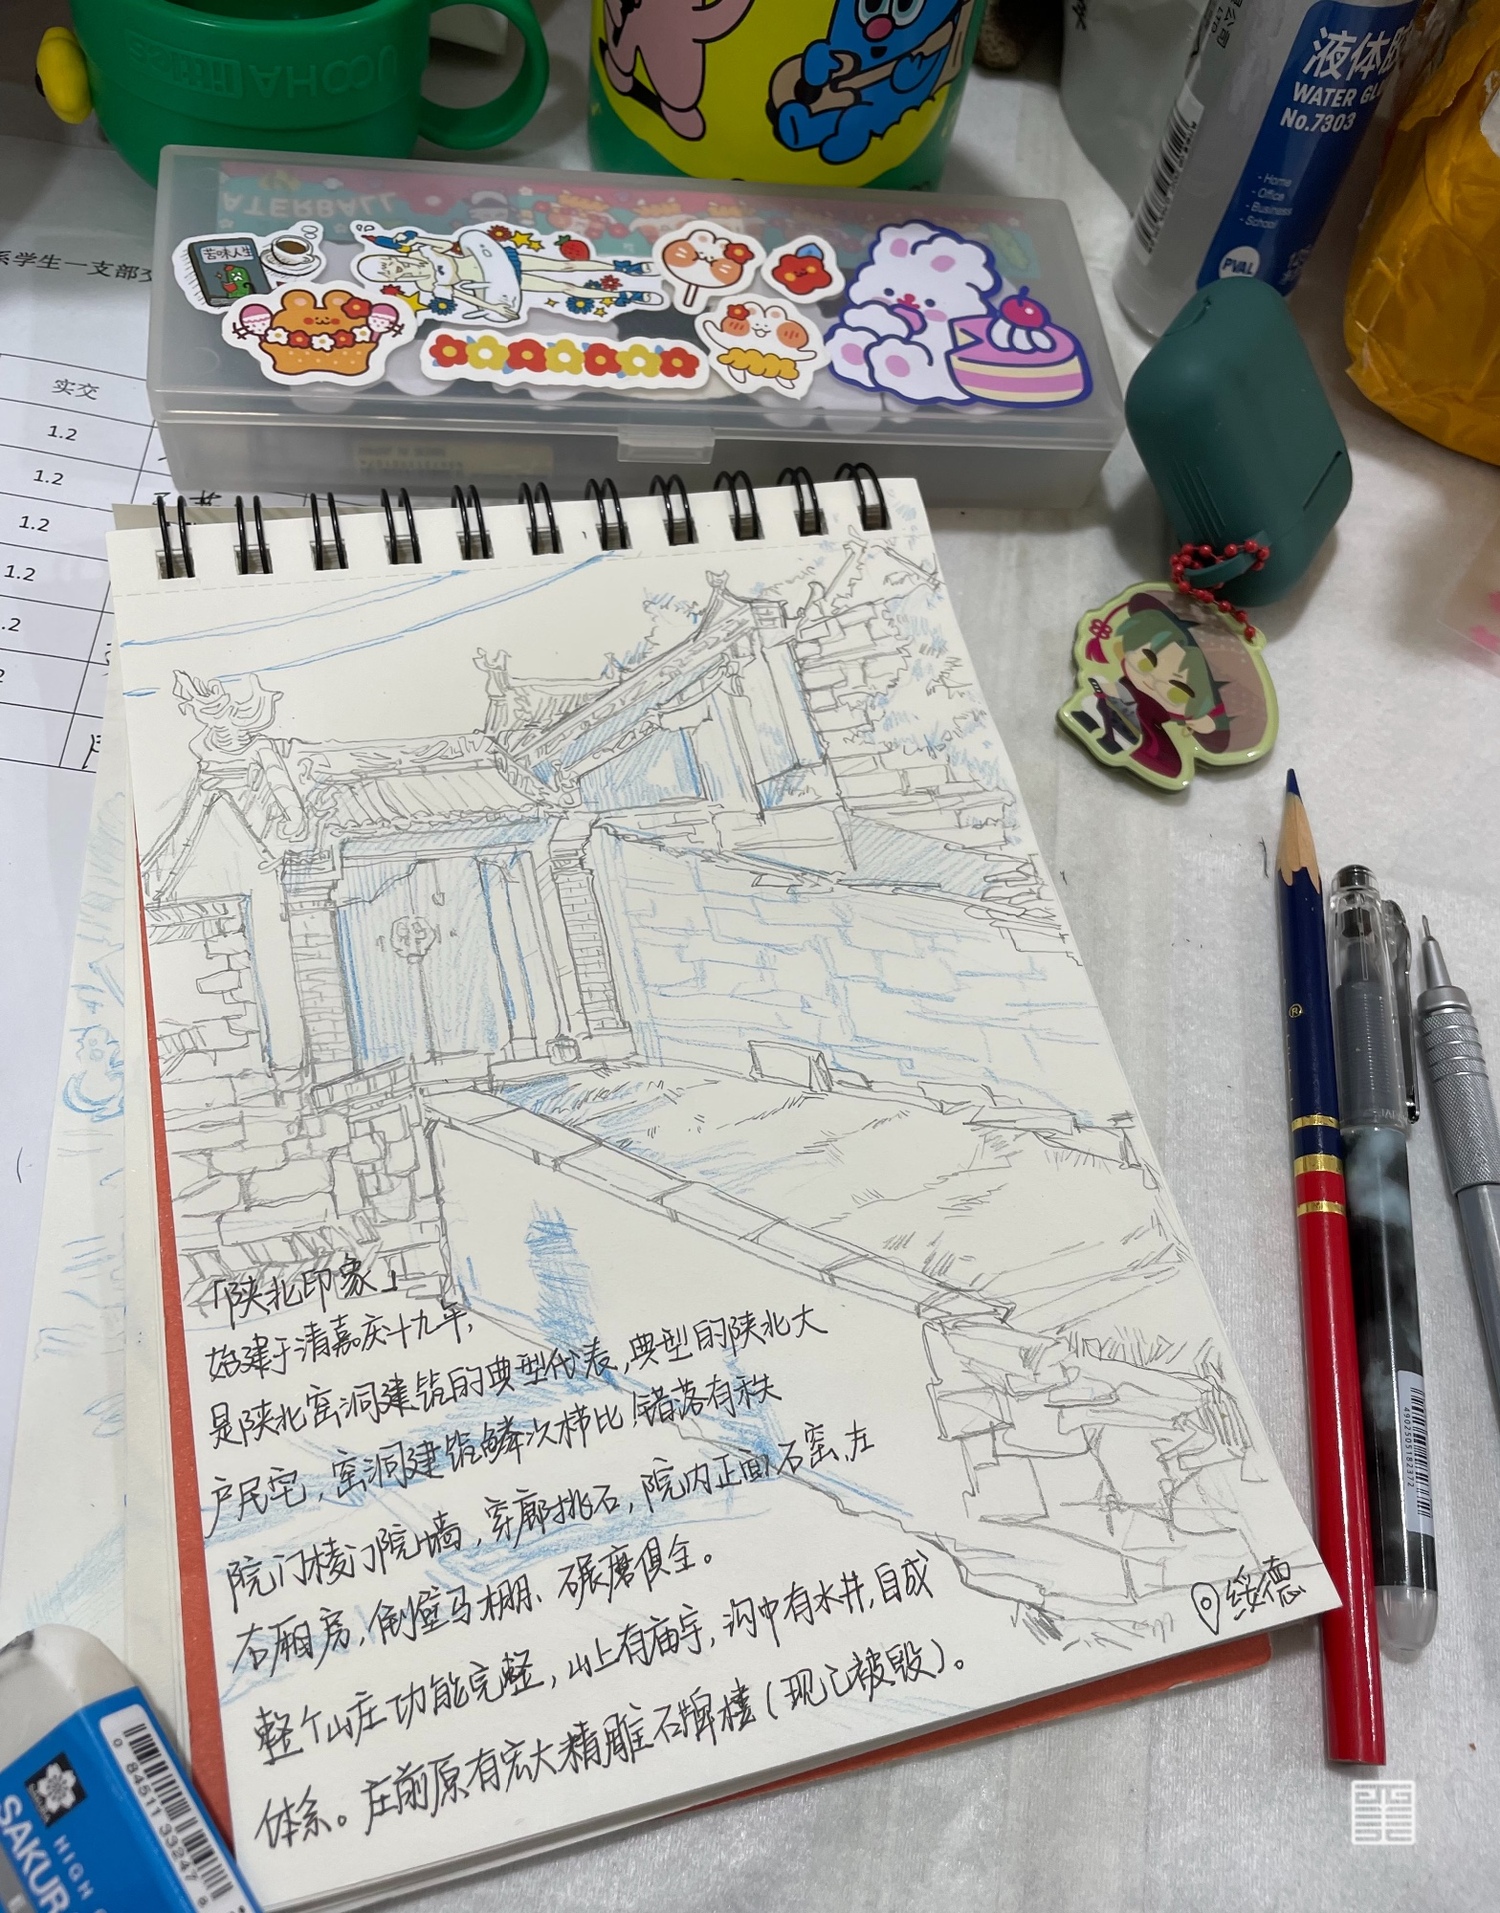 UOOHA little
液体胶
WATER GLU
No.7303
- Home
- Office
- Business
- School
PVAL
ATERBALL
苦味人生
系学生一支部交
实交
1.2
1.2
1.2
1.2
.2
2
「陕北印象」
始建于清嘉庆十九年,
是陕北窑洞建筑的典型代表,典型的陕北大
户民宅,窑洞建筑鳞次栉比!错落有秩
院门楼门院墙,穿廊挑石,院内正面石窑,左
右厢房,倒座马棚、碾磨俱全。
整个山庄功能完整,山上有庙宇,沟中有水井,自成
体系。庄前原有宏大精雕石牌楼(现已被毁)。
绥德
4902505182372
0 84511 33247
SAKUR
HIGH